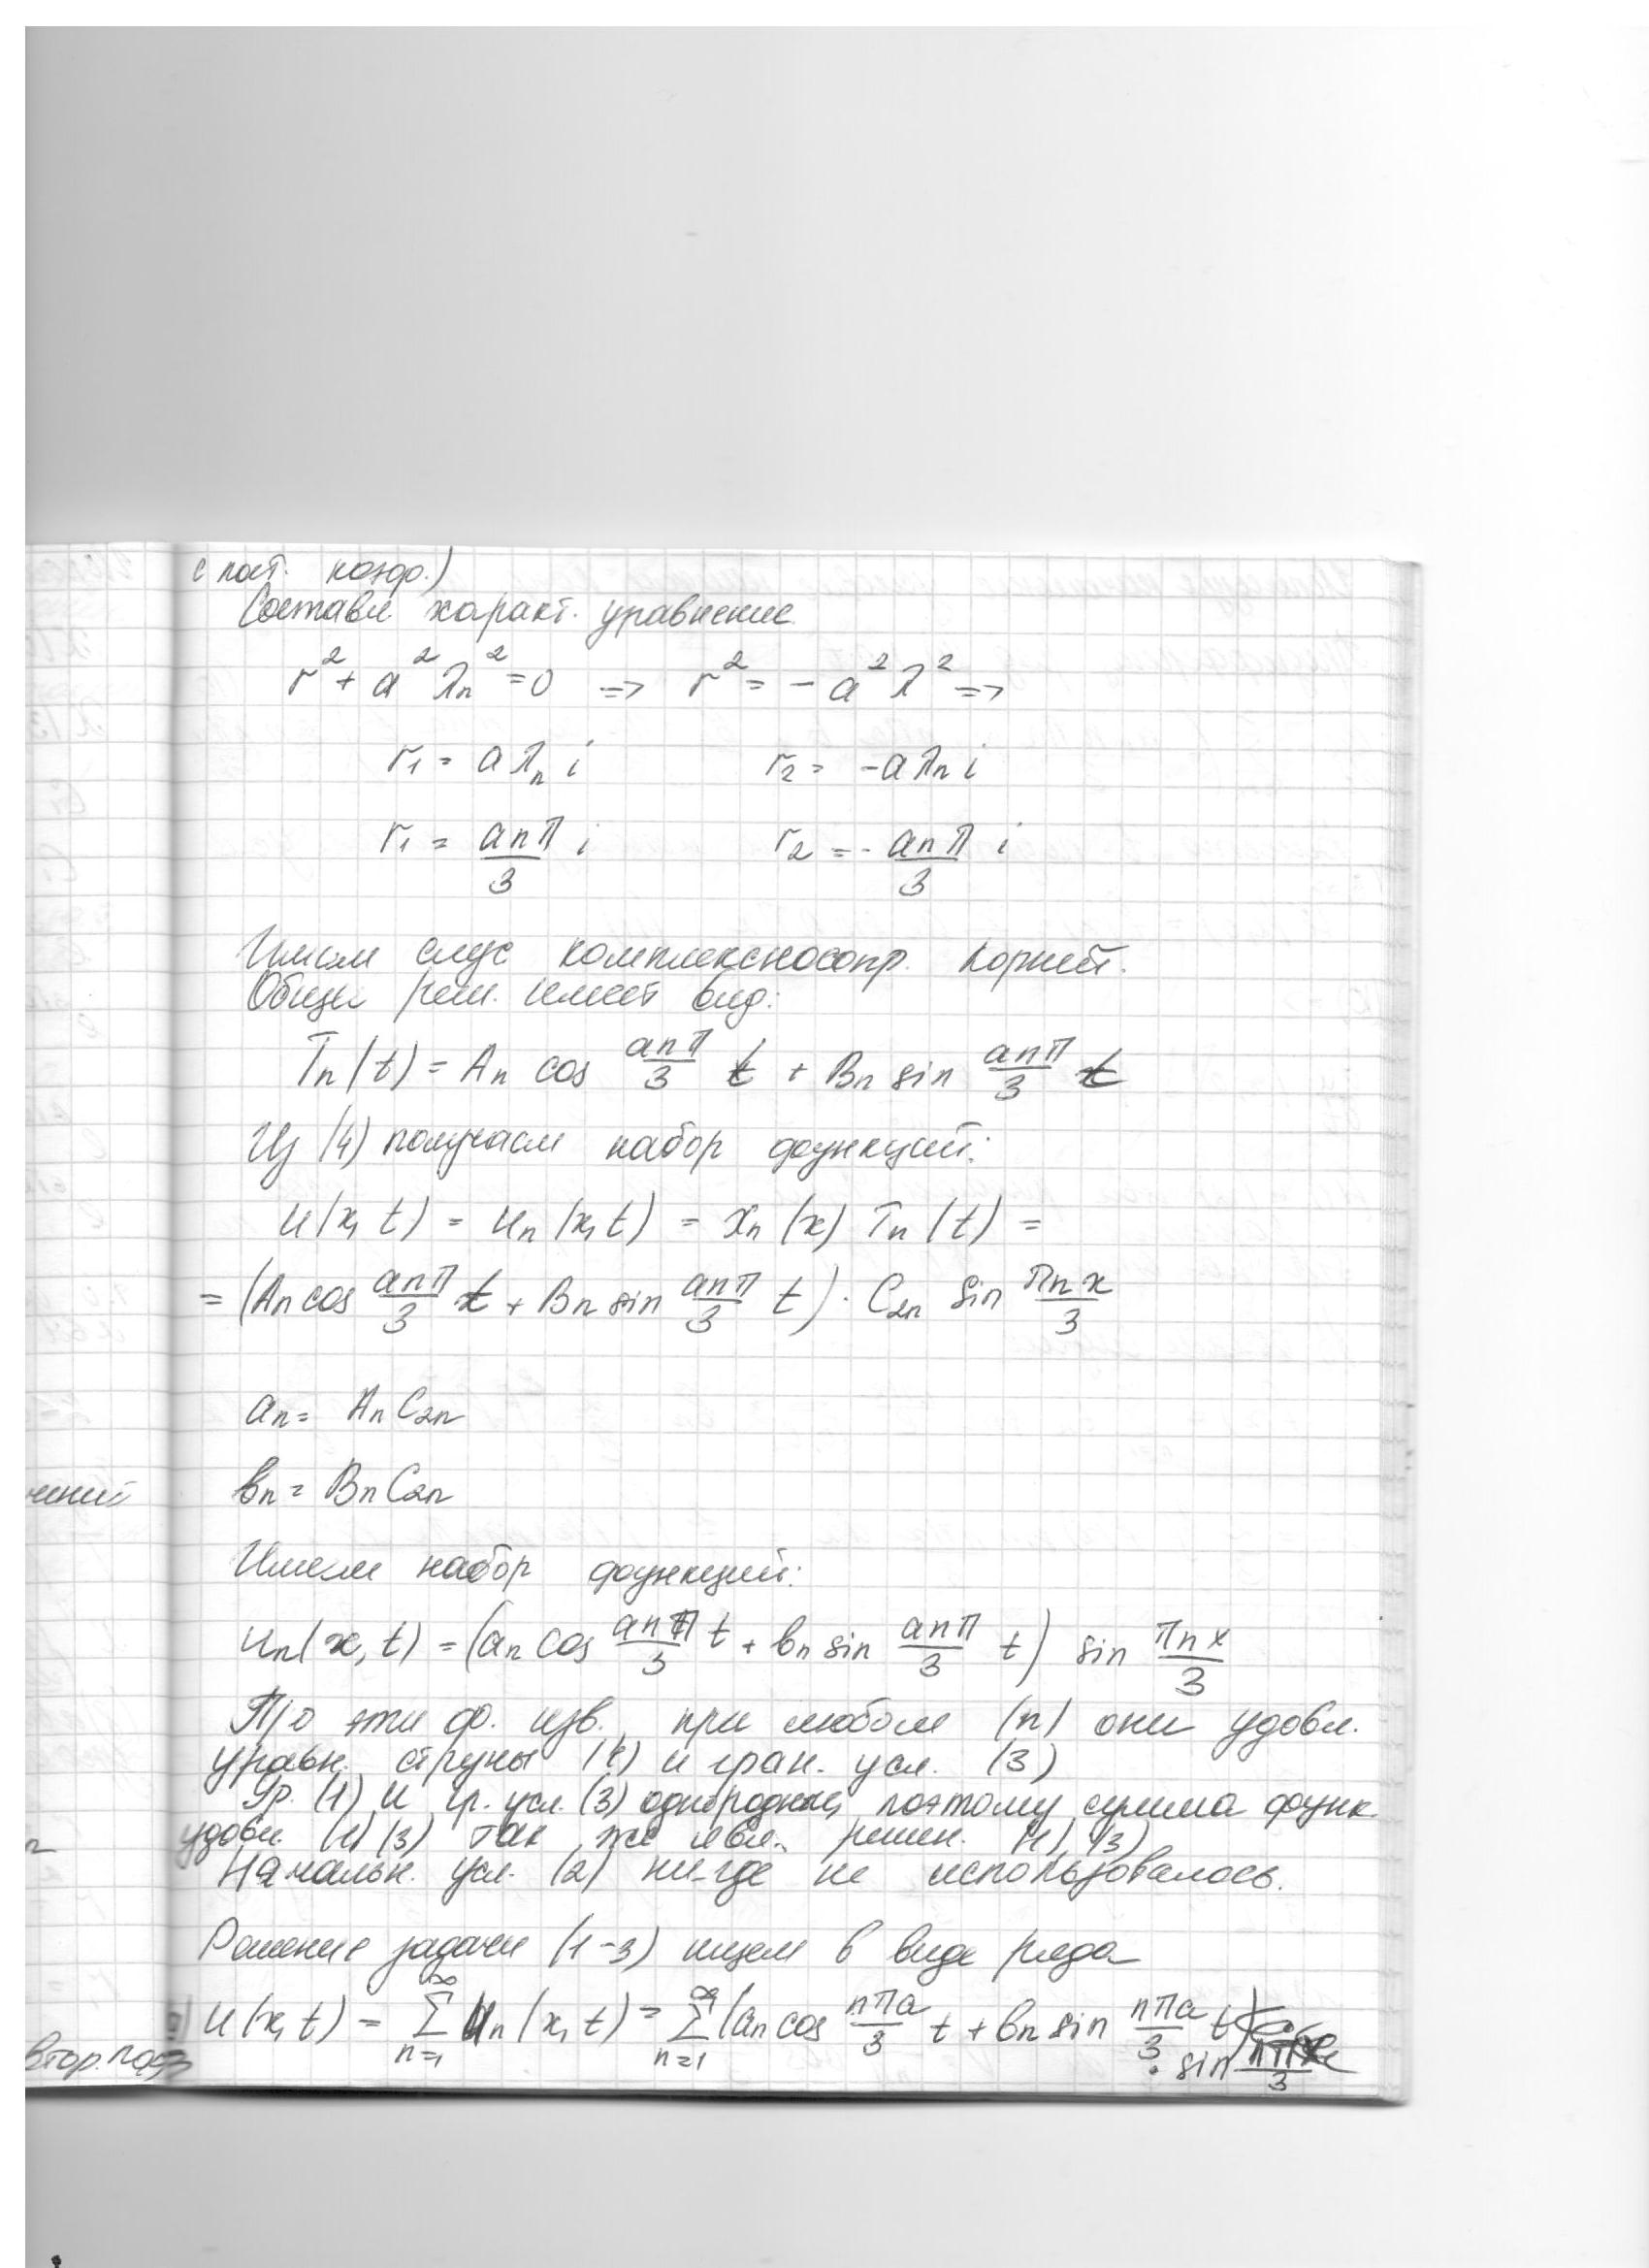 с пост. коэфф.)
Составл характ. уравнение.
r² + a²λn² = 0 => r² = -a²λ² =>
r1 = aλn i r2 = -aλn i
r1 = anπ/3 i r2 = - anπ/3 i
Имеем случ комплексносопр. корней.
Общи реш. имеет вид:
Tn(t) = An cos anπ/3 t + Bn sin anπ/3 t
Из (4) получаем набор функций:
u(x, t) = un(x, t) = Xn(x) Tn(t) =
= (An cos anπ/3 t + Bn sin anπ/3 t) · C2n sin πnx/3
an = AnC2n
чений
bn = BnC2n
Имеем набор функций:
un(x, t) = (an cos anπ/3 t + bn sin anπ/3 t) sin πnx/3
эти ф. изв. при любом (n) они удовл.
уравн. струны (1) и гран. усл. (3)
Ур. (1) и гр. усл. (3) однородны, поэтому сумма функ.
удовл. (1) (3) так же явл. решен. (1), (3)
Начальн. усл. (2) ни-где не использовалось.
Решение задачи (1-3) ищем в виде ряда
u(x, t) = ∞Σn=1 un(x, t) = ∞Σn=1 (an cos nπa/3 t + bn sin nπa/3 t)
· sin nπx/3
втор.